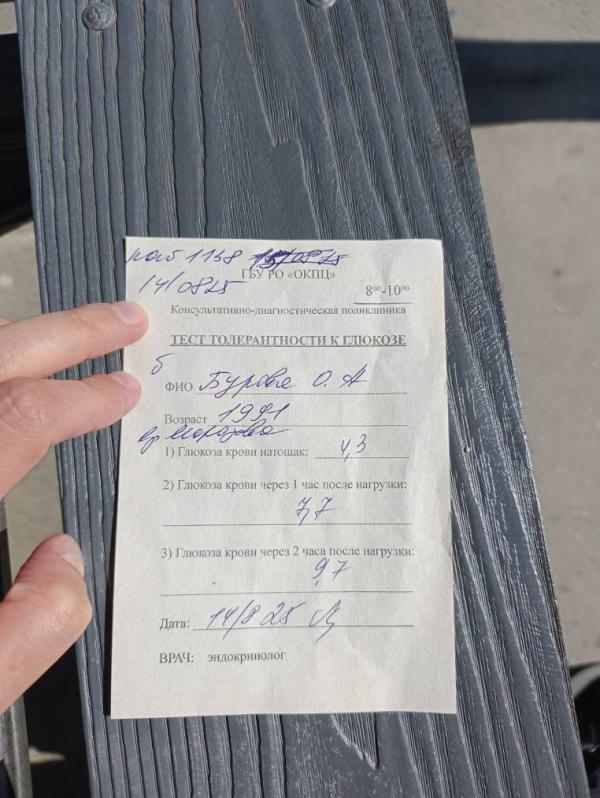 каб 1138 15/08 25
ГБУ РО «ОКПЦ»
14/08 25
8⁰⁰-10⁰⁰
Консультативно-диагностическая поликлиника
ТЕСТ ТОЛЕРАНТНОСТИ К ГЛЮКОЗЕ
б
ФИО Бурова О. А
Возраст 1991
вр Морозова
1) Глюкоза крови натощак: 4,3
2) Глюкоза крови через 1 час после нагрузки:
7,7
3) Глюкоза крови через 2 часа после нагрузки:
9,7
Дата: 14/8 25
ВРАЧ: эндокринолог